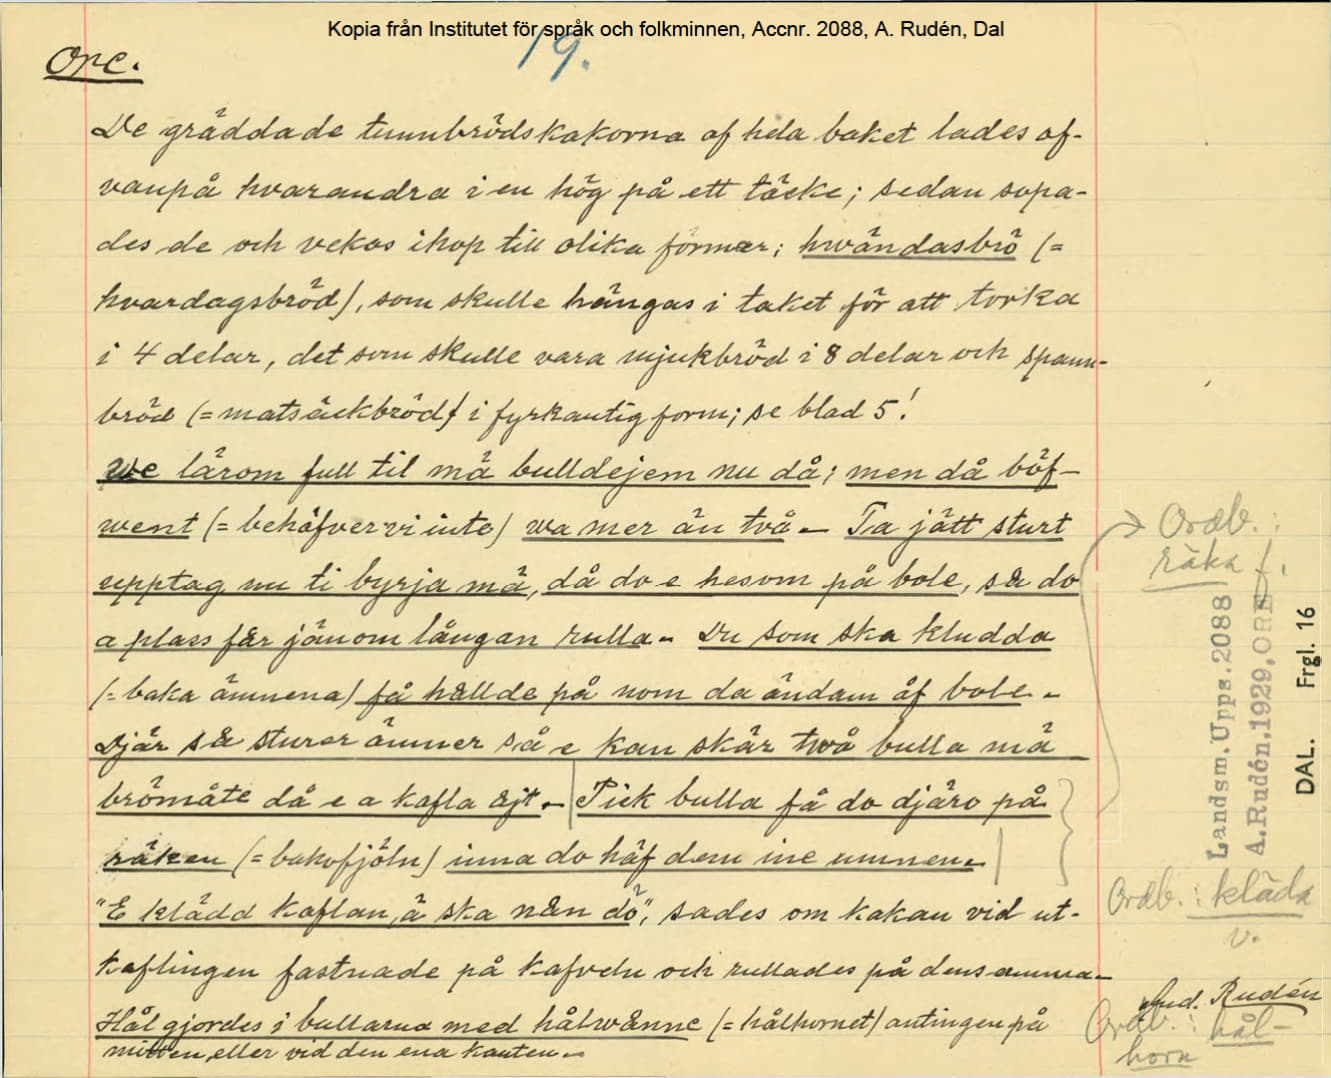 Kopia från Institutet för språk och folkminnen, Accnr. 2088, A. Rudén, Dal
19.
Ore.
De gräddade tunnbrödskakorna af hela baket lades of-
vanpå hvarandra i en hög på ett täcke; sedan sopa-
des de och vekos ihop till olika former; hwändasbrö (=
hvardagsbröd), som skulle hängas i taket för att torka
i 4 delar, det som skulle vara mjukbröd i 8 delar och spann-
bröd (= matsäckbröd) i fyrkantig form; se blad 5!
We lärom full til mä bulldejem nu då; men då böf-
went (= behöfver vi inte) wa mer än två. – Ta jätt sturt
upptag nu ti byrja mä, då do e hesom på bole, så do
a plass fär jänom långan rulla. – Du som ska kludda
(= baka ämnena) få hållde på nom da ändam åf bole. –
Djär så sturer ämner så e kan skär två bulla mä
brömåte då e a kafla åjt. – Pick bulla få do djäro på
räken (= bakofjöln) inna do häf dem ine umnen. –
"E klädd kaflan, ä ska nån dö", sades om kakan vid ut-
kaflingen fastnade på kafveln och rullades på densamma. –
Hål gjordes i bullarna med hålwänne (= hålhornet) antingen på
mitten, eller vid den ena kanten. –
Ordb. :
räka f.
Landsm. Upps. 2088
A. Rudén, 1929, ORE
DAL. Frgl. 16
Ordb. : kläda
v.
And. Rudén
Ordb. : hål-
horn